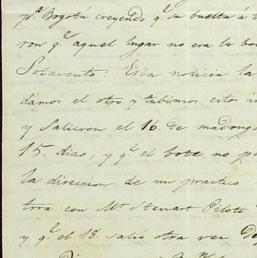 pª. Bogotá creyendo qº. su buelta á
ron qº. aquel lugar no era la bo
Sotavento. Esta noticia la
damos el otro y tubimos estos
y salieron el 16. de madrug
15. dias, y qº. el bote no p
la direccion de un practico
tora con Mr. Stenart Piloto
y qº. el 18. salió otra vez